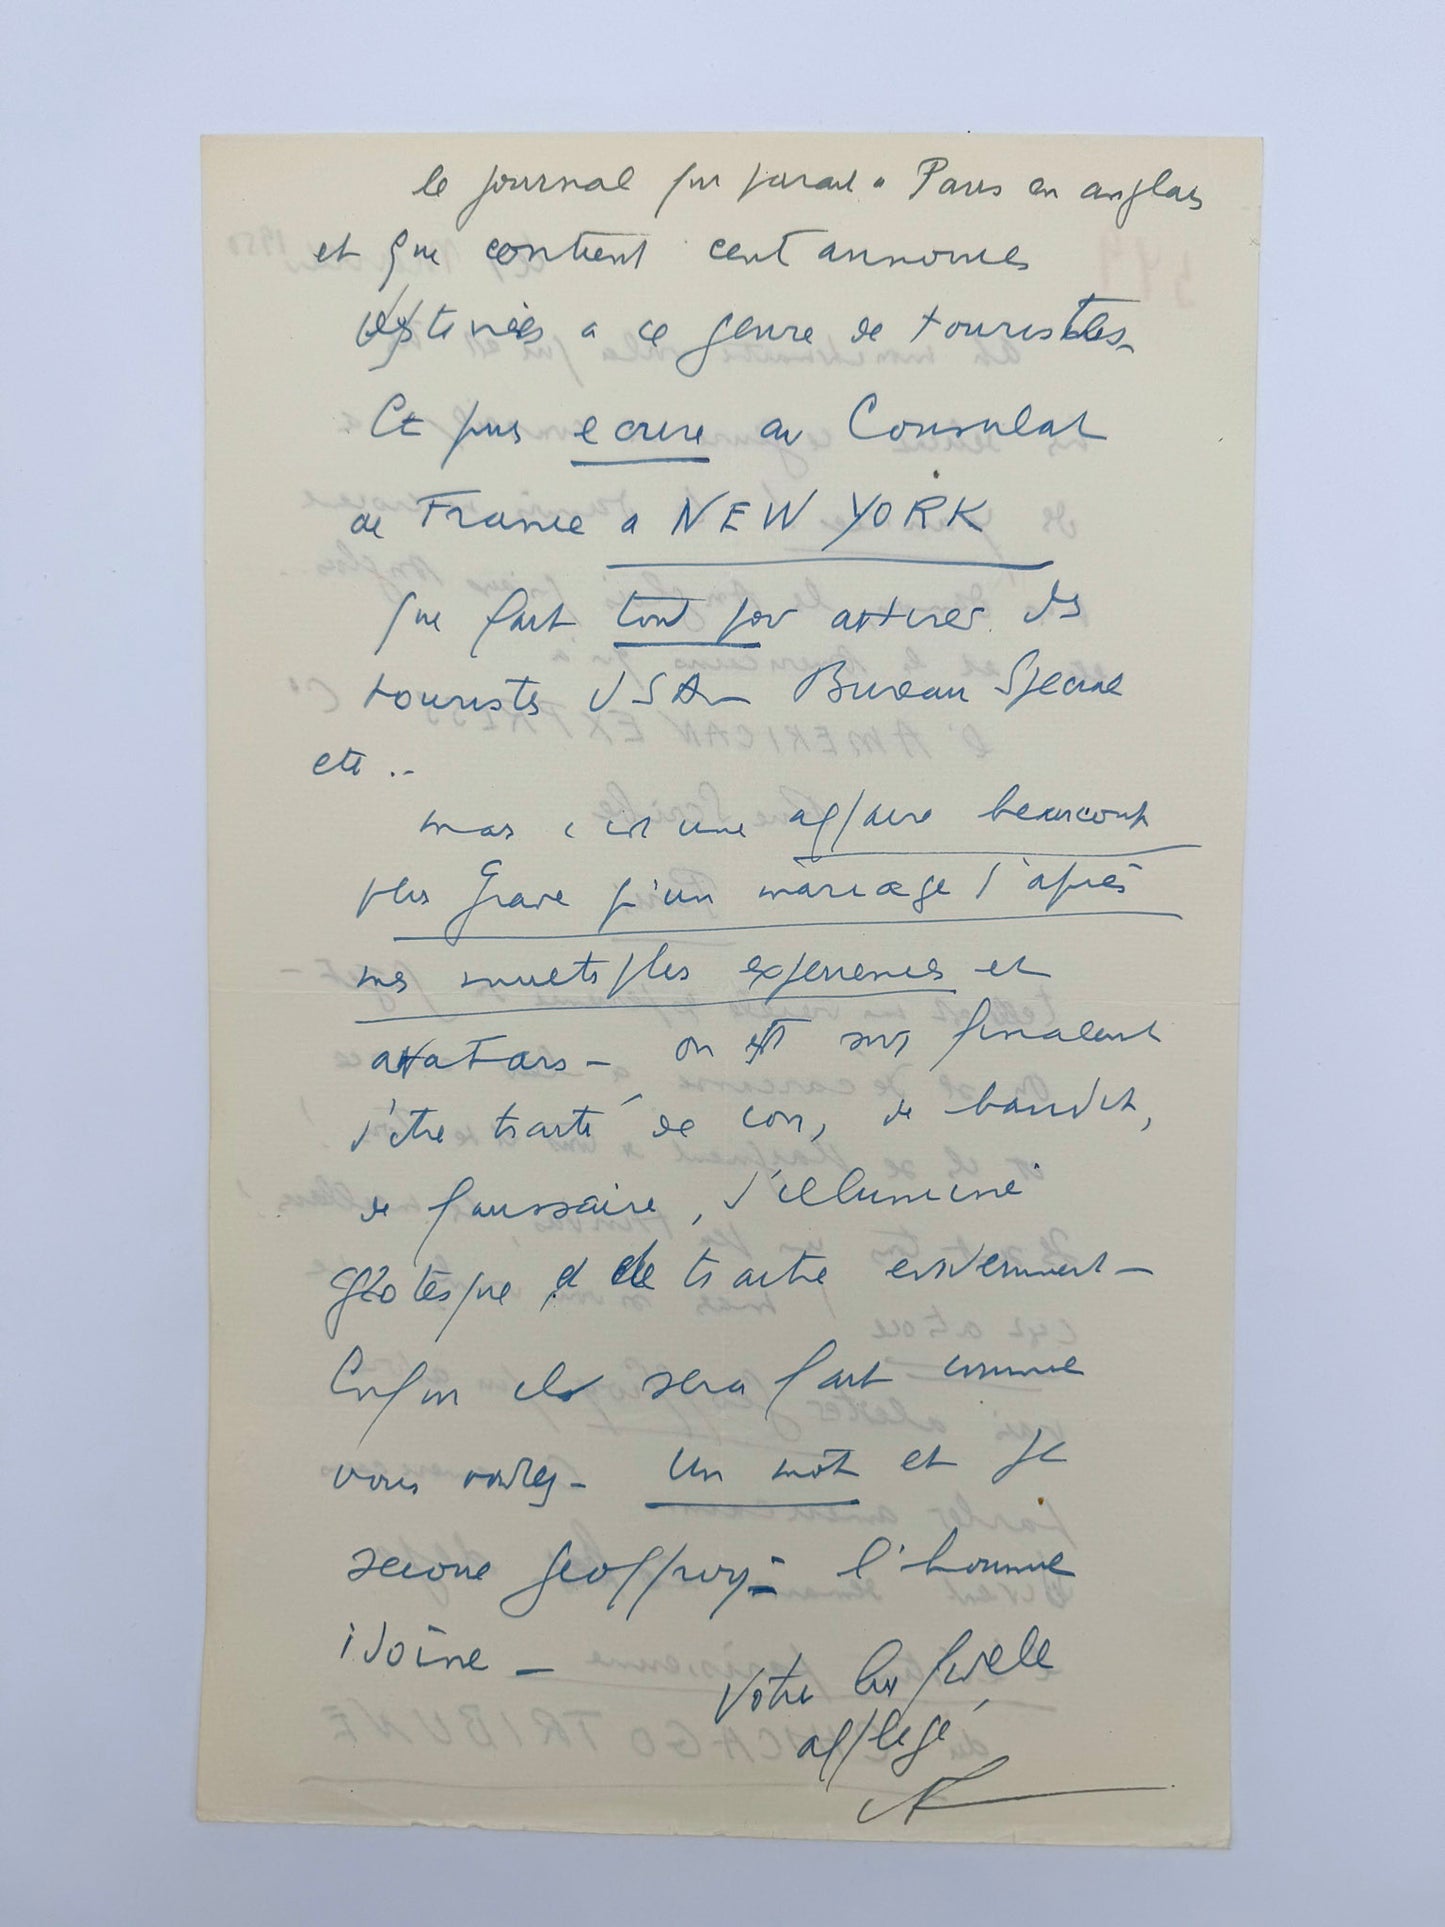 le journal qui parait à Paris en anglais
et qui contient cent annonces
destinées a ce genre de touristes_
Et puis ecrire au Consulat
de France a NEW YORK
qui fait tout pour attirer des
touristes USA_ Bureau Special
etc ..
mais c est une affaire beaucoup
plus Grave qu'un mariage d'après
mes multiples experiences et
avatars – on est sur finalement
d'être traité de con, de bandit,
de faussaire, d'illuminé
grotesque et de traitre evidemment –
Enfin il sera fait comme
vous voudrez – Un mot et je
secoue Geoffroy – l'homme
idoine –
Votre bien fidele
affligé